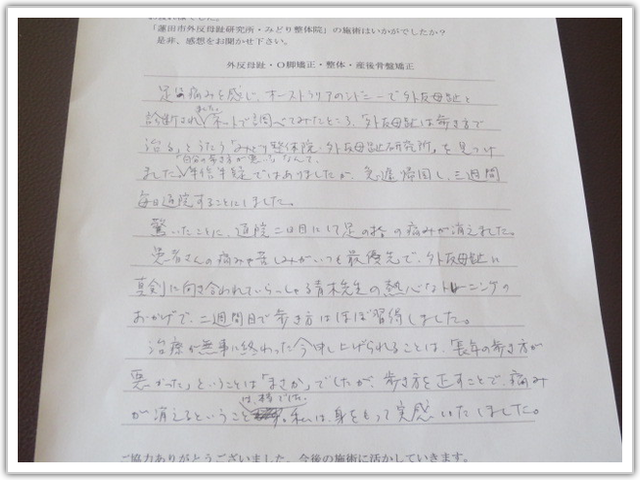 「蓮田市外反母趾研究所・みどり整体院」の施術はいかがでしたか？
是非、感想をお聞かせ下さい。
外反母趾・O脚矯正・整体・産後骨盤矯正
足の痛みを感じ、オーストラリアのシドニーで外反母趾と
診断されました。ネットで調べてみたところ、「外反母趾は歩き方で
治る」とうたう「みどり整体院・外反母趾研究所」を見つけ
ました。「自分の歩き方が悪い」なんて、半信半疑ではありましたが、急遽帰国し、三週間
毎日通院することにしました。
驚いたことに、通院二日目には足の指の痛みが消えました。
患者さんの痛みや苦しみがいつも最優先で、外反母趾に
真剣に向き合われていらっしゃる青木先生の熱心なトレーニングの
おかげで、二週間目で歩き方はほぼ習得しました。
治療が無事に終わった今申し上げられることは、「長年の歩き方が
悪かった」ということは「まさか」でしたが、歩き方を正すことで、痛み
が消えるということは、本当でした。私は、身をもって実感いたしました。
ご協力ありがとうございました。今後の施術に活かしていきます。